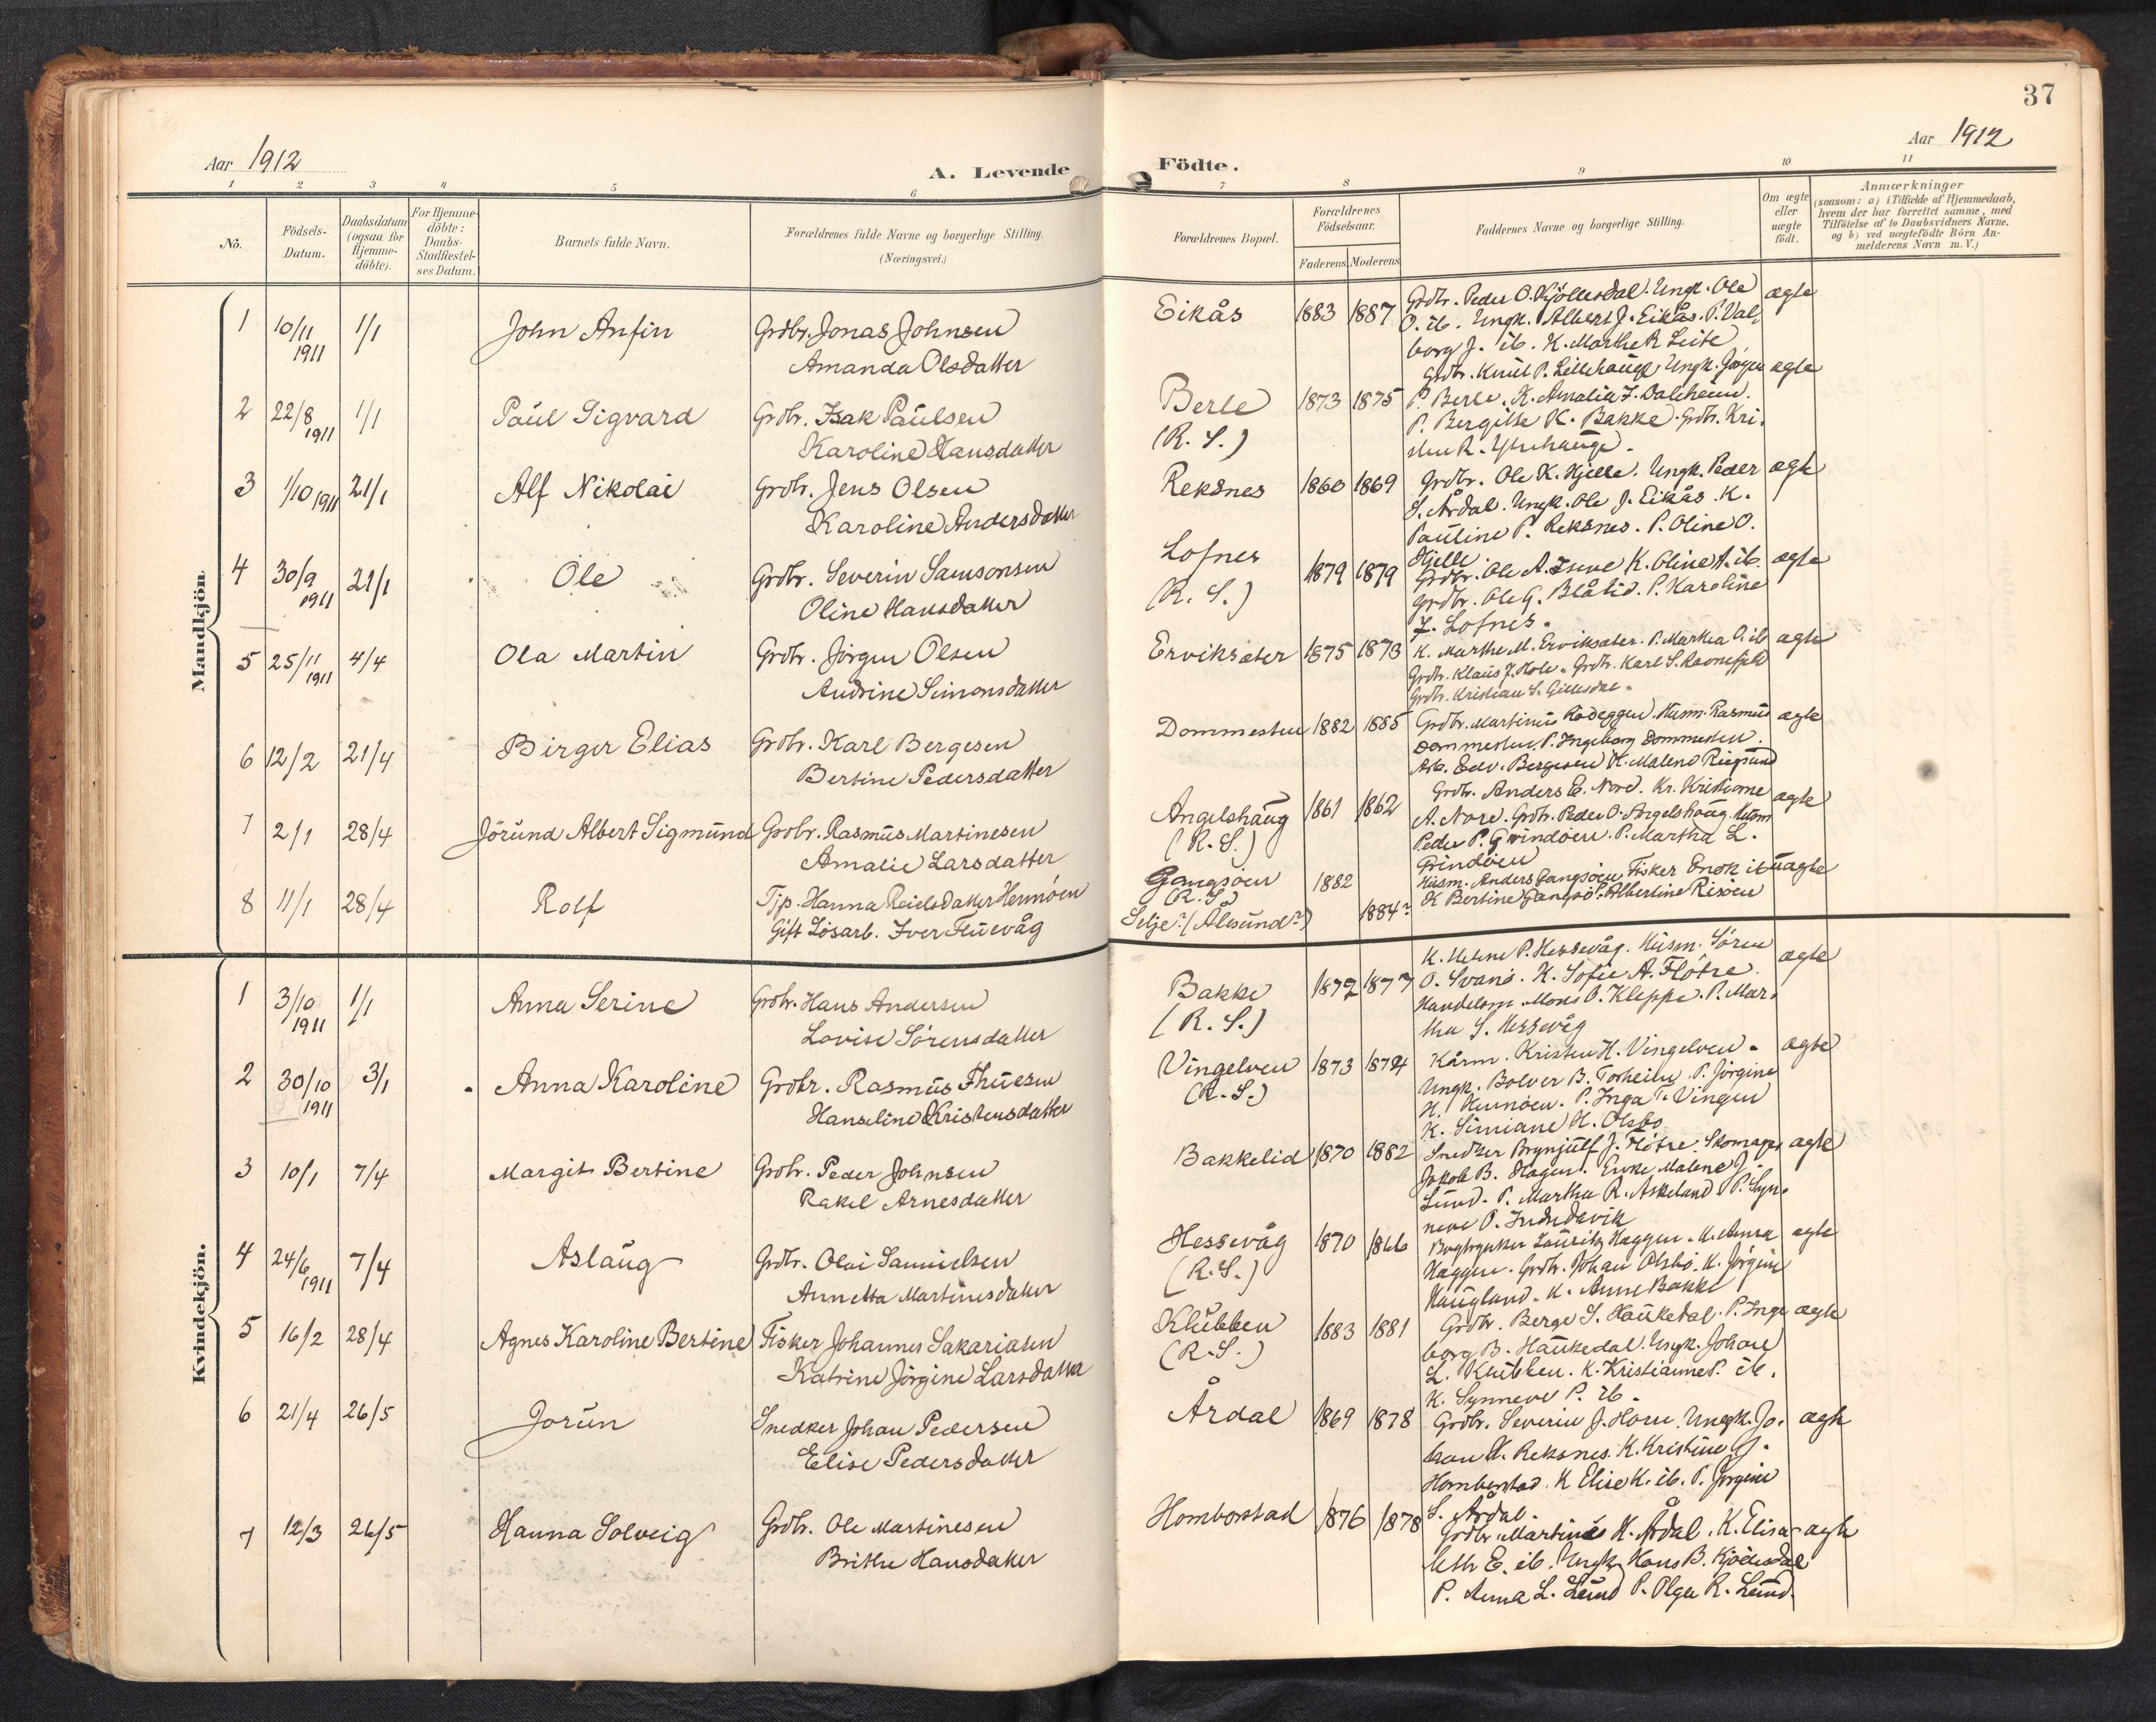 37
Aar 1912
Aar 1912
A. Levende Födte.
1 2 3 4 5 6 7 8 9 10 11
No.
Födsels-Datum.
Daabsdatum (ogsaa for Hjemme-döbte).
For Hjemme-döbte: Daabs-Stadfæstel-ses Datum.
Barnets fulde Navn.
Forældrenes fulde Navne og borgerlige Stilling. (Næringsvei.)
Forældrenes Bopæl.
Forældrenes Födselsaar.
Faderens. Moderens
Faddernes Navne og borgerlige Stilling.
Om ægte eller uægte födt.
Anmærkninger
(saasom: a) i Tilfælde af Hjemmedaab,
hvem der har forrettet samme, med
Tilföielse af to Daabsvidners Navne,
og b) ved uægtefödte Börn An-
melderens Navn m. V.)
Mandkjön.
1 10/11 1911 1/1 John Anfin Grdbr. Jonas Johnsen
Amanda Olsdatter
Eikås 1883 1887 ægte
Grdbr. Peder O. Kjöllesdal. Ungk. Ole
O. ib. Ungk. Albert J. Eikås. P. Val,
borg J. ib. K. Marthe R. Leite
2 22/8 1911 1/1 Paul Sigvard Grdbr. Isak Paulsen
Karoline Hansdatter
Berle (R. S.) 1873 1875 ægte
Grdbr. Knut P. Lillehaug Ungk. Jørgen
P. Berle. K. Amalia J. Dalheim.
P. Bergitte K. Bakke. Grdbr. Kri.
3 1/10 1911 21/1 Alf Nikolai Grdbr. Jens Olsen
Karoline Andersdatter
Reksnes 1860 1869 ægte
Grdbr. Ole K. Hjelle. Ungk. Peder
S. Årdal. Ungk. Ole J. Eikås. K.
Pauline P. Reksnes. P. Oline O.
Hjelle.
4 30/9 1911 21/1 Ole Grdbr. Severin Samsonsen
Oline Hansdatter
Lofnes (R. S.) 1879 1879 ægte
Grdbr. Ole A. K. Oline A. ib.
Grdbr. Ole G. Blålid. P. Karoline
J. Lofnes.
5 25/11 1911 4/4 Ola Martin Grdbr. Jörgen Olsen
Andrine Simonsdatter
Erviksæter 1875 1873 ægte
K. Marthe M. Erviksæter. P. Martha O. ib
Grdbr. Klaus J. Hole. Grdbr. Karl S. Ravnefjeld
Grdbr. Kristian S.
6 12/2 21/4 Birger Elias Grdbr. Karl Bergesen
Bertine Pedersdatter
Dommesten 1882 1885 ægte
Grdbr. Martinus Rödeggen. Husm. Rasmus
Dommesten. P. Ingeborg Dommesten.
Arb. Edv. Bergesen K. Malene Risesund
7 2/1 28/4 Jörund Albert Sigmund Grdbr. Rasmus Martinesen
Amalie Larsdatter
Angelshaug (R. S.) 1861 1862 ægte
Grdbr. Anders E. Nord. Kr. Kristiane
A. Nore. Grdbr. Peder O. Angelshaug. Husm
Peder P. Grindöen. P. Martha L.
Grindöen
8 11/1 28/4 Rolf Tjp. Hanna Reielsdatter Hennöen
Gift Lösarb. Iver Fluevåg
Gangsöen (R. S.) 1882
Selje? (Ålesund?) 1884? uægte
Husm. Anders Gangsöen Fisker Enok ib
K Bertine Gangsö. P. Albertine Risöen
Kvindekjön.
1 3/10 1911 1/1 Anna Serine Grdbr. Hans Andersen
Lovise Sörensdatter
Bakke (R. S.) 1872 1877 ægte
K. Helene P. Hessevåg. Husm. Sören
O. Svanö. K. Sofie A. Flötre.
Handelsm. Mons O. Kleppe. P. Mar,
tha S. Hessevåg
2 30/10 1911 3/1 Anna Karoline Grdbr. Rasmus Thuesen
Hanseline Kristensdatter
Vingelven (R. S.) 1873 1874 ægte
Kårm. Kristen H. Vingelven.
Ungk. Bolver B. Torheim. P. Jörgine
H. Hennöen. P. Inga T. Vingen
K. Simiane H. Olsbö
3 10/1 7/4 Margit Bertine Grdbr. Peder Johnsen
Rakel Arnesdatter
Bakkelid 1870 1882 ægte
Snedker Brynjulf J. Flötre. Skomager
Jakob B. Hagen. Enke Malene J.
Lund. P. Martha R. Askeland P. Syn.
neve P. Indredavik
4 24/6 1911 7/4 Aslaug Grdbr. Olai Samuelsen
Annetta Martinesdatter
Hessevåg (R. S.) 1870 1866 ægte
Bogtrykker Lauritz Haggen. K. Anna
Haggen. Grdbr. Johan Olsbö. K. Jörgine
Haugland. K. Anne Bakke
5 16/2 28/4 Agnes Karoline Bertine Fisker Johannes Sakariasen
Katrine Jörgine Larsdatter
Klubben (R. S.) 1883 1881 ægte
Grdbr. Berge S. Haukedal. P. Inge
borg B. Haukedal. Ungk. Johan
L. Klubben. K. Kristianne P. ib.
K. Synneve P. ib.
6 21/4 26/5 Jorun Snedker Johan Pedersen
Elise Pedersdatter
Årdal 1869 1878 ægte
Grdbr. Severin J. Horn. Ungk. Jo.
han H. Reksnes. K. Kristine J.
Hornborstad. K Elise K. ib. P. Jörgine
S. Årdal.
7 12/3 26/5 Hanna Solveig Grdbr. Ole Martinesen
Brithe Hansdatter
Homborstad 1876 1878 ægte
Grdbr. Martines H. Årdal. K. Elisa-
beth E. ib. Ungk. Hans B. Kjölesdal
P. Anna L. Leund P. Olga R. Leund.